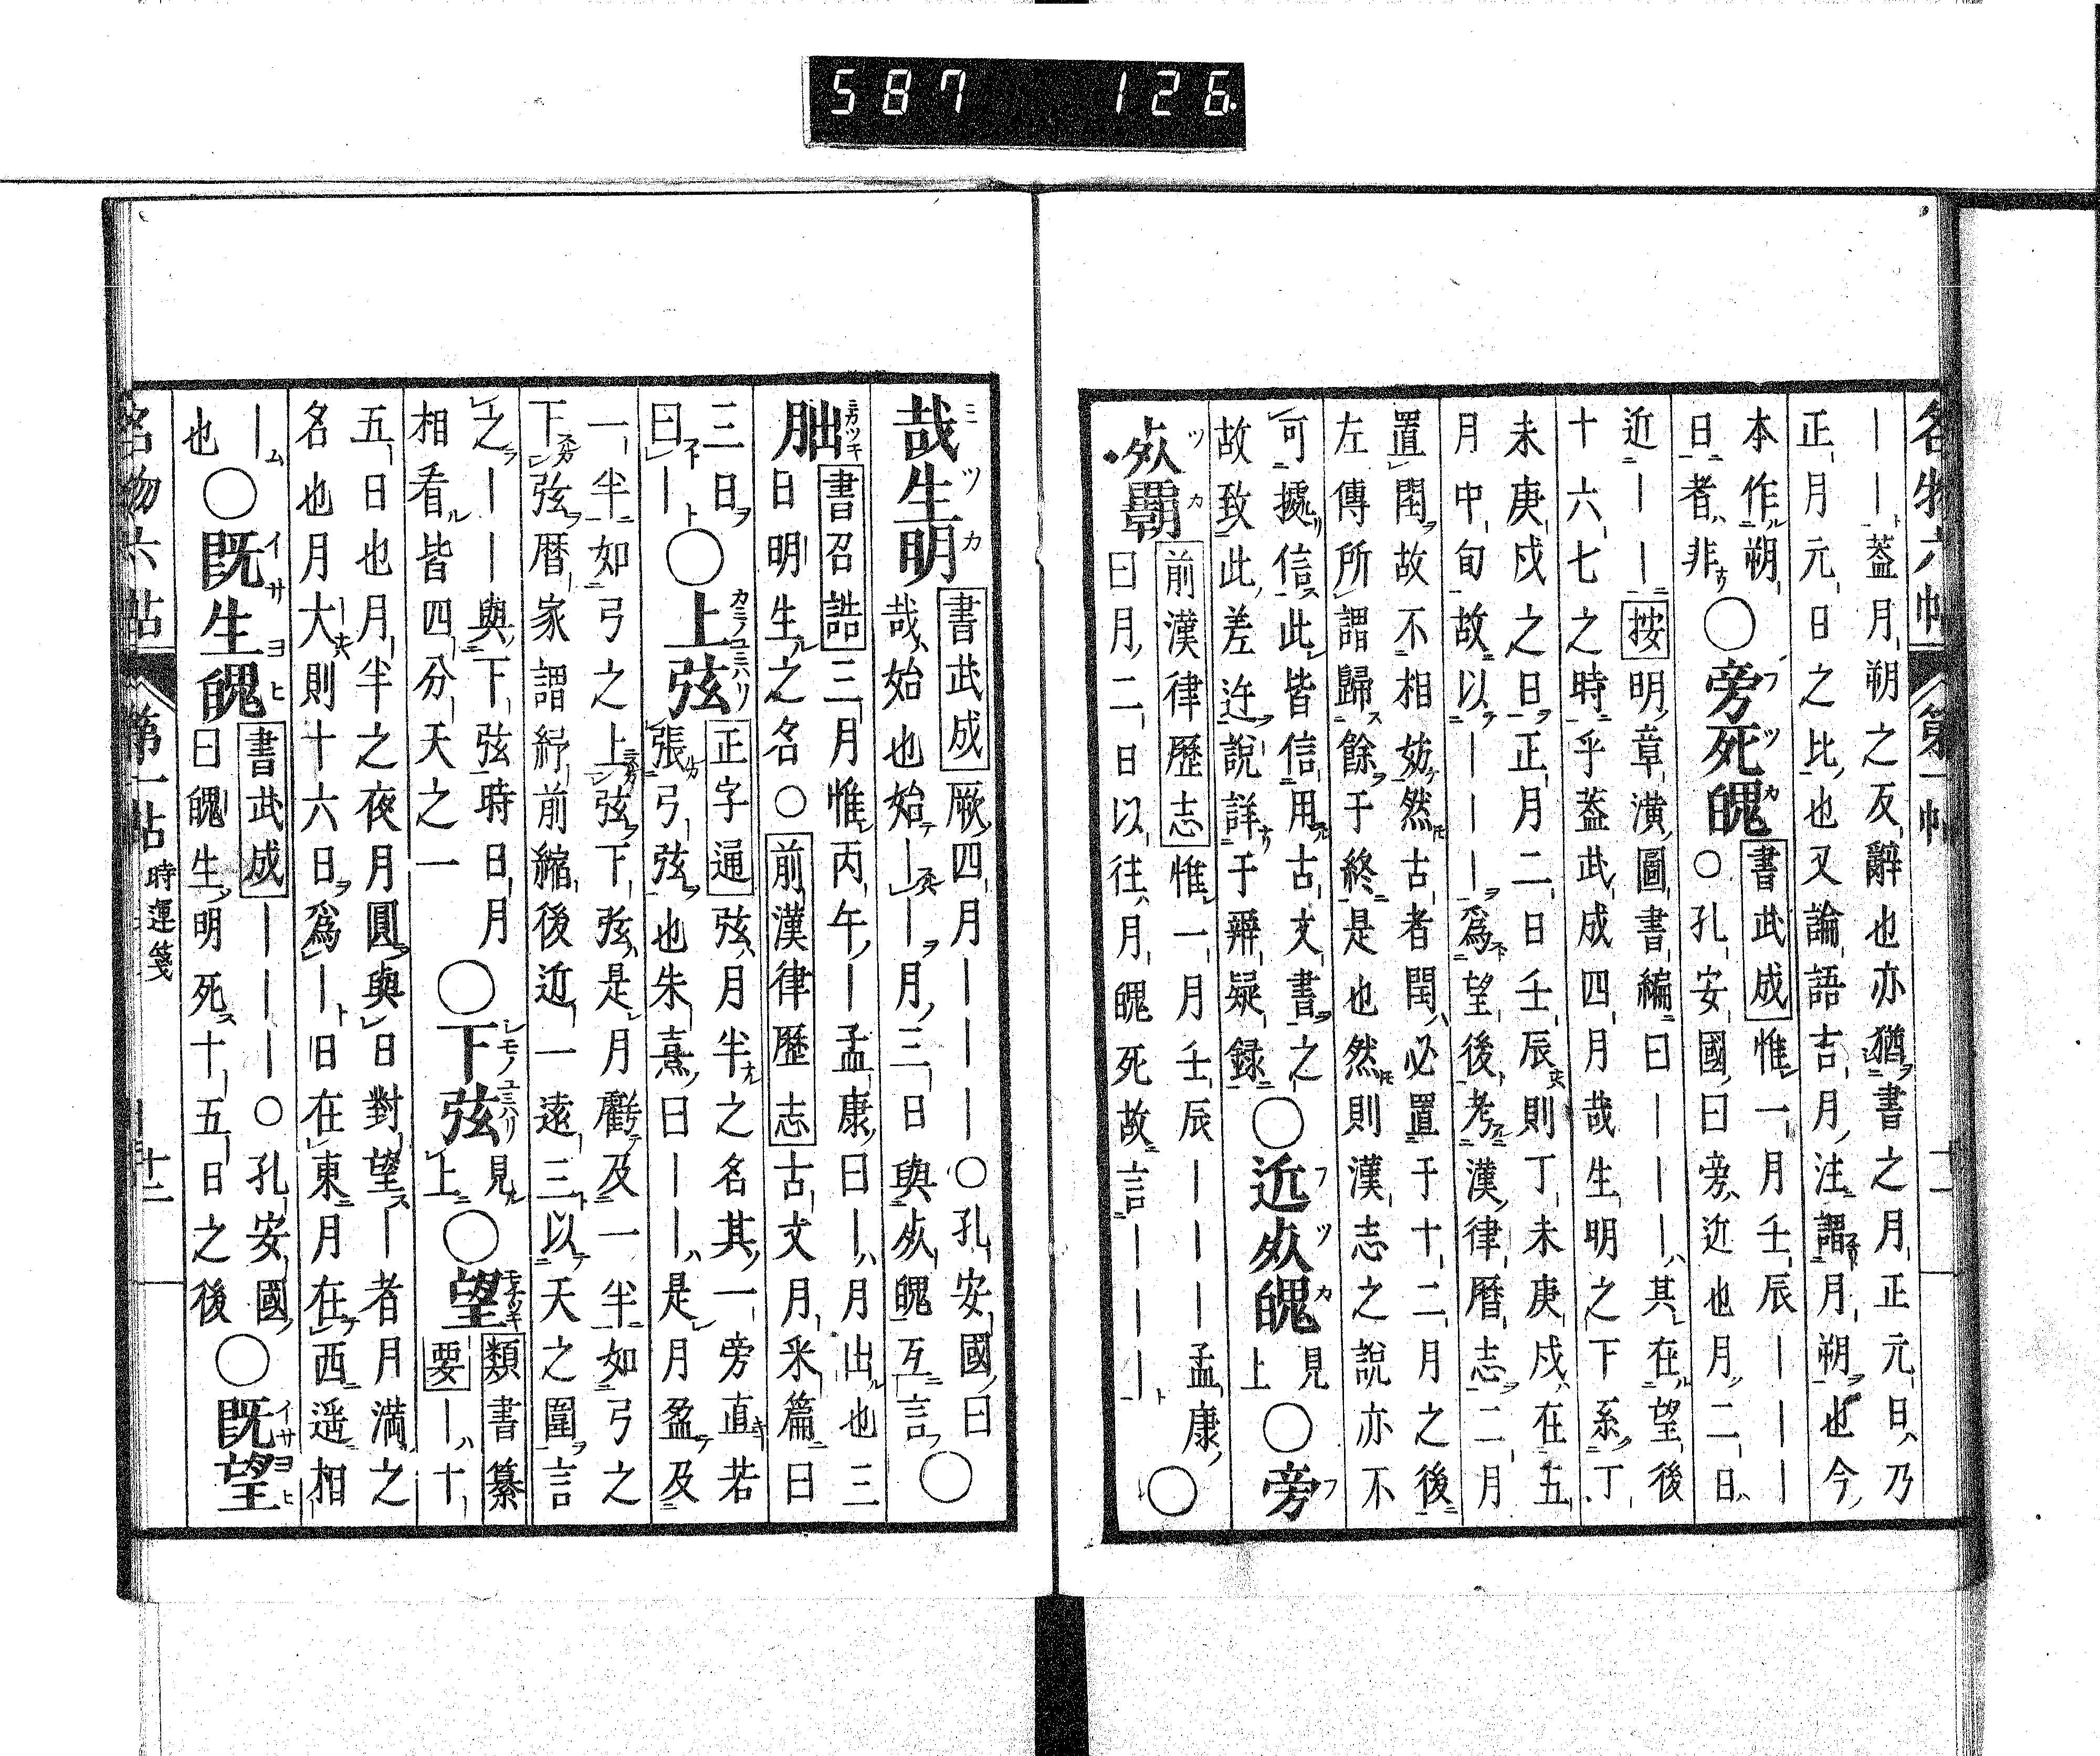 587 126
名物六帖 第一帖
｜｜蓋月朔之反辭也亦猶書之月正元日乃
正月元日之比也又論語吉月注謂月朔也今
本作朔
日者非○旁死魄書武成惟一月壬辰｜｜｜
○孔安國曰旁近也月二日
近｜｜｜按明章潢圖書編曰｜｜｜其在望後
十六七之時乎蓋武成四月哉生明之下系丁
未庚戌之日正月二日壬辰則丁未庚戌在五
月中旬故以｜｜｜爲望後考漢律曆志二月
置閏故不相妨然古者閏必置于十二月之後
左傳所謂歸餘于終是也然則漢志之說亦不
可據信此皆信用古文書之
故致此差迕說詳于辨疑録○近死魄見上○旁
死霸前漢律歷志惟一月壬辰｜｜｜孟康
曰月二日以往月魄死故言｜｜｜｜○
哉生明書武成厥四月｜｜｜○孔安國曰
哉始也始｜｜月三日與死魄互言○
朏書召誥三月惟丙午｜孟康曰｜月出也三
日明生之名○前漢律歷志古文月釆篇曰
三日
曰｜○上弦正字通弦月半之名其一旁直若
張弓弦也朱熹曰｜｜是月盈及
一半如弓之上弦下弦是月虧及一半如弓之
下弦曆家謂紓前縮後近一遠三以天之圍言
之｜｜與下弦時日月
相看皆四分天之一○下弦見上○望類書纂
要｜十
五日也月半之夜月圓與日對望｜者月滿之
名也月大則十六日爲｜日在東月在西遥相
｜
也○既生魄書武成｜｜｜○孔安國
曰魄生明死十五日之後○既望
名物六帖 第一帖 時運箋 十二